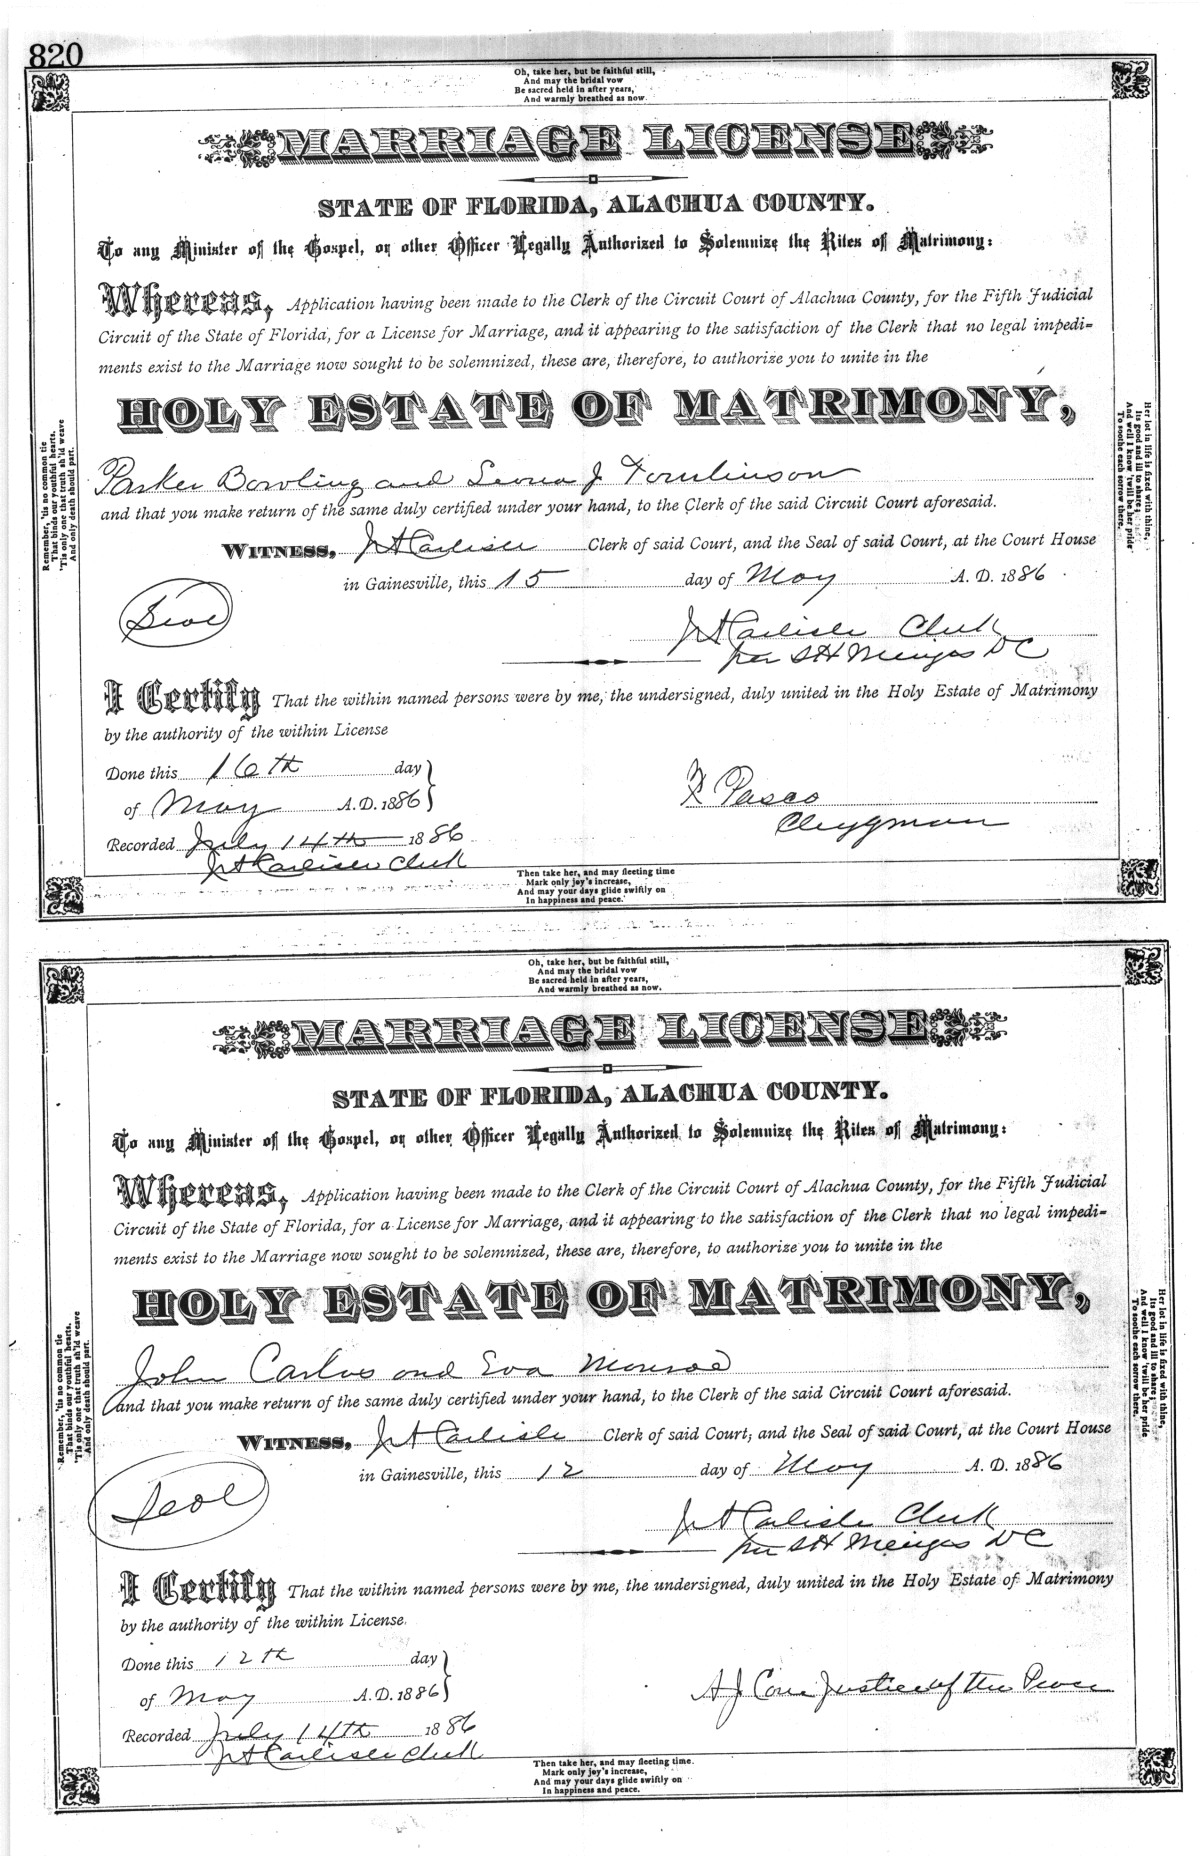 820
Oh, take her, but be faithful still,
And may the bridal vow
Be sacred held in after years,
And warmly breathed as now.
MARRIAGE LICENSE
STATE OF FLORIDA, ALACHUA COUNTY.
To any Minister of the Gospel, or other Officer Legally Authorized to Solemnize the Rites of Matrimony:
Whereas, Application having been made to the Clerk of the Circuit Court of Alachua County, for the Fifth Judicial
Circuit of the State of Florida, for a License for Marriage, and it appearing to the satisfaction of the Clerk that no legal impedi-
ments exist to the Marriage now sought to be solemnized, these are, therefore, to authorize you to unite in the
HOLY ESTATE OF MATRIMONY,
Remember, 'tis no common tie
That binds our youthful hearts.
'Tis only one that truth sh'ld weave
And only death should part.
Her lot in life is fixed with thine,
Its good and ill to share;
And well I know 'twill be her pride
To soothe each sorrow there.
Parker Bowling and Leona J Tomlinson
and that you make return of the same duly certified under your hand, to the Clerk of the said Circuit Court aforesaid.
WITNESS, J A Carlisle Clerk of said Court, and the Seal of said Court, at the Court House
in Gainesville, this 15 day of May A. D. 1886.
Seal
J A Carlisle Clerk
per S H Meiges DC
I Certify That the within named persons were by me, the undersigned, duly united in the Holy Estate of Matrimony
by the authority of the within License
Done this 16th day
of May A.D. 1886
F Pasco
Clergyman
Recorded July 14th 1886
J A Carlisle Clerk
Then take her, and may fleeting time
Mark only joy's increase,
And may your days glide swiftly on
In happiness and peace.
Oh, take her, but be faithful still,
And may the bridal vow
Be sacred held in after years,
And warmly breathed as now.
MARRIAGE LICENSE
STATE OF FLORIDA, ALACHUA COUNTY.
To any Minister of the Gospel, or other Officer Legally Authorized to Solemnize the Rites of Matrimony:
Whereas, Application having been made to the Clerk of the Circuit Court of Alachua County, for the Fifth Judicial
Circuit of the State of Florida, for a License for Marriage, and it appearing to the satisfaction of the Clerk that no legal impedi-
ments exist to the Marriage now sought to be solemnized, these are, therefore, to authorize you to unite in the
HOLY ESTATE OF MATRIMONY,
Remember, 'tis no common tie
That binds our youthful hearts.
'Tis only one that truth sh'ld weave
And only death should part.
Her lot in life is fixed with thine,
Its good and ill to share;
And well I know 'twill be her pride
To soothe each sorrow there.
John Carlos and Eva Monroe
and that you make return of the same duly certified under your hand, to the Clerk of the said Circuit Court aforesaid.
WITNESS, J A Carlisle Clerk of said Court, and the Seal of said Court, at the Court House
in Gainesville, this 12 day of May A. D. 1886
Seal
J A Carlisle Clerk
per S H Meiges DC
I Certify That the within named persons were by me, the undersigned, duly united in the Holy Estate of Matrimony
by the authority of the within License.
Done this 12th day
of May A.D. 1886
A J Justice of the Peace
Recorded July 14th 1886
J A Carlisle Clerk
Then take her, and may fleeting time.
Mark only joy's increase,
And may your days glide swiftly on
In happiness and peace.